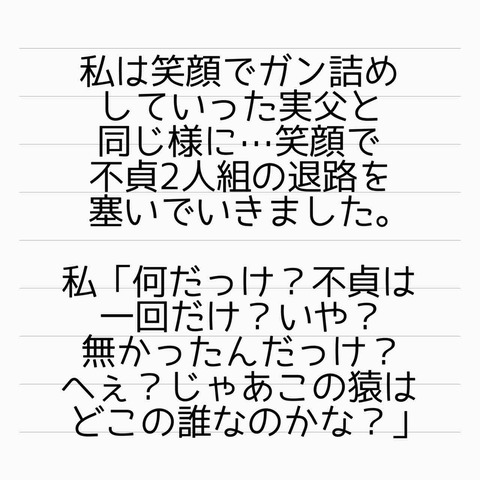 私は笑顔でガン詰め
していった実父と
同じ様に…笑顔で
不貞2人組の退路を
塞いでいきました。
私「何だっけ？不貞は
一回だけ？いや？
無かったんだっけ？
へぇ？じゃあこの猿は
どこの誰なのかな？」